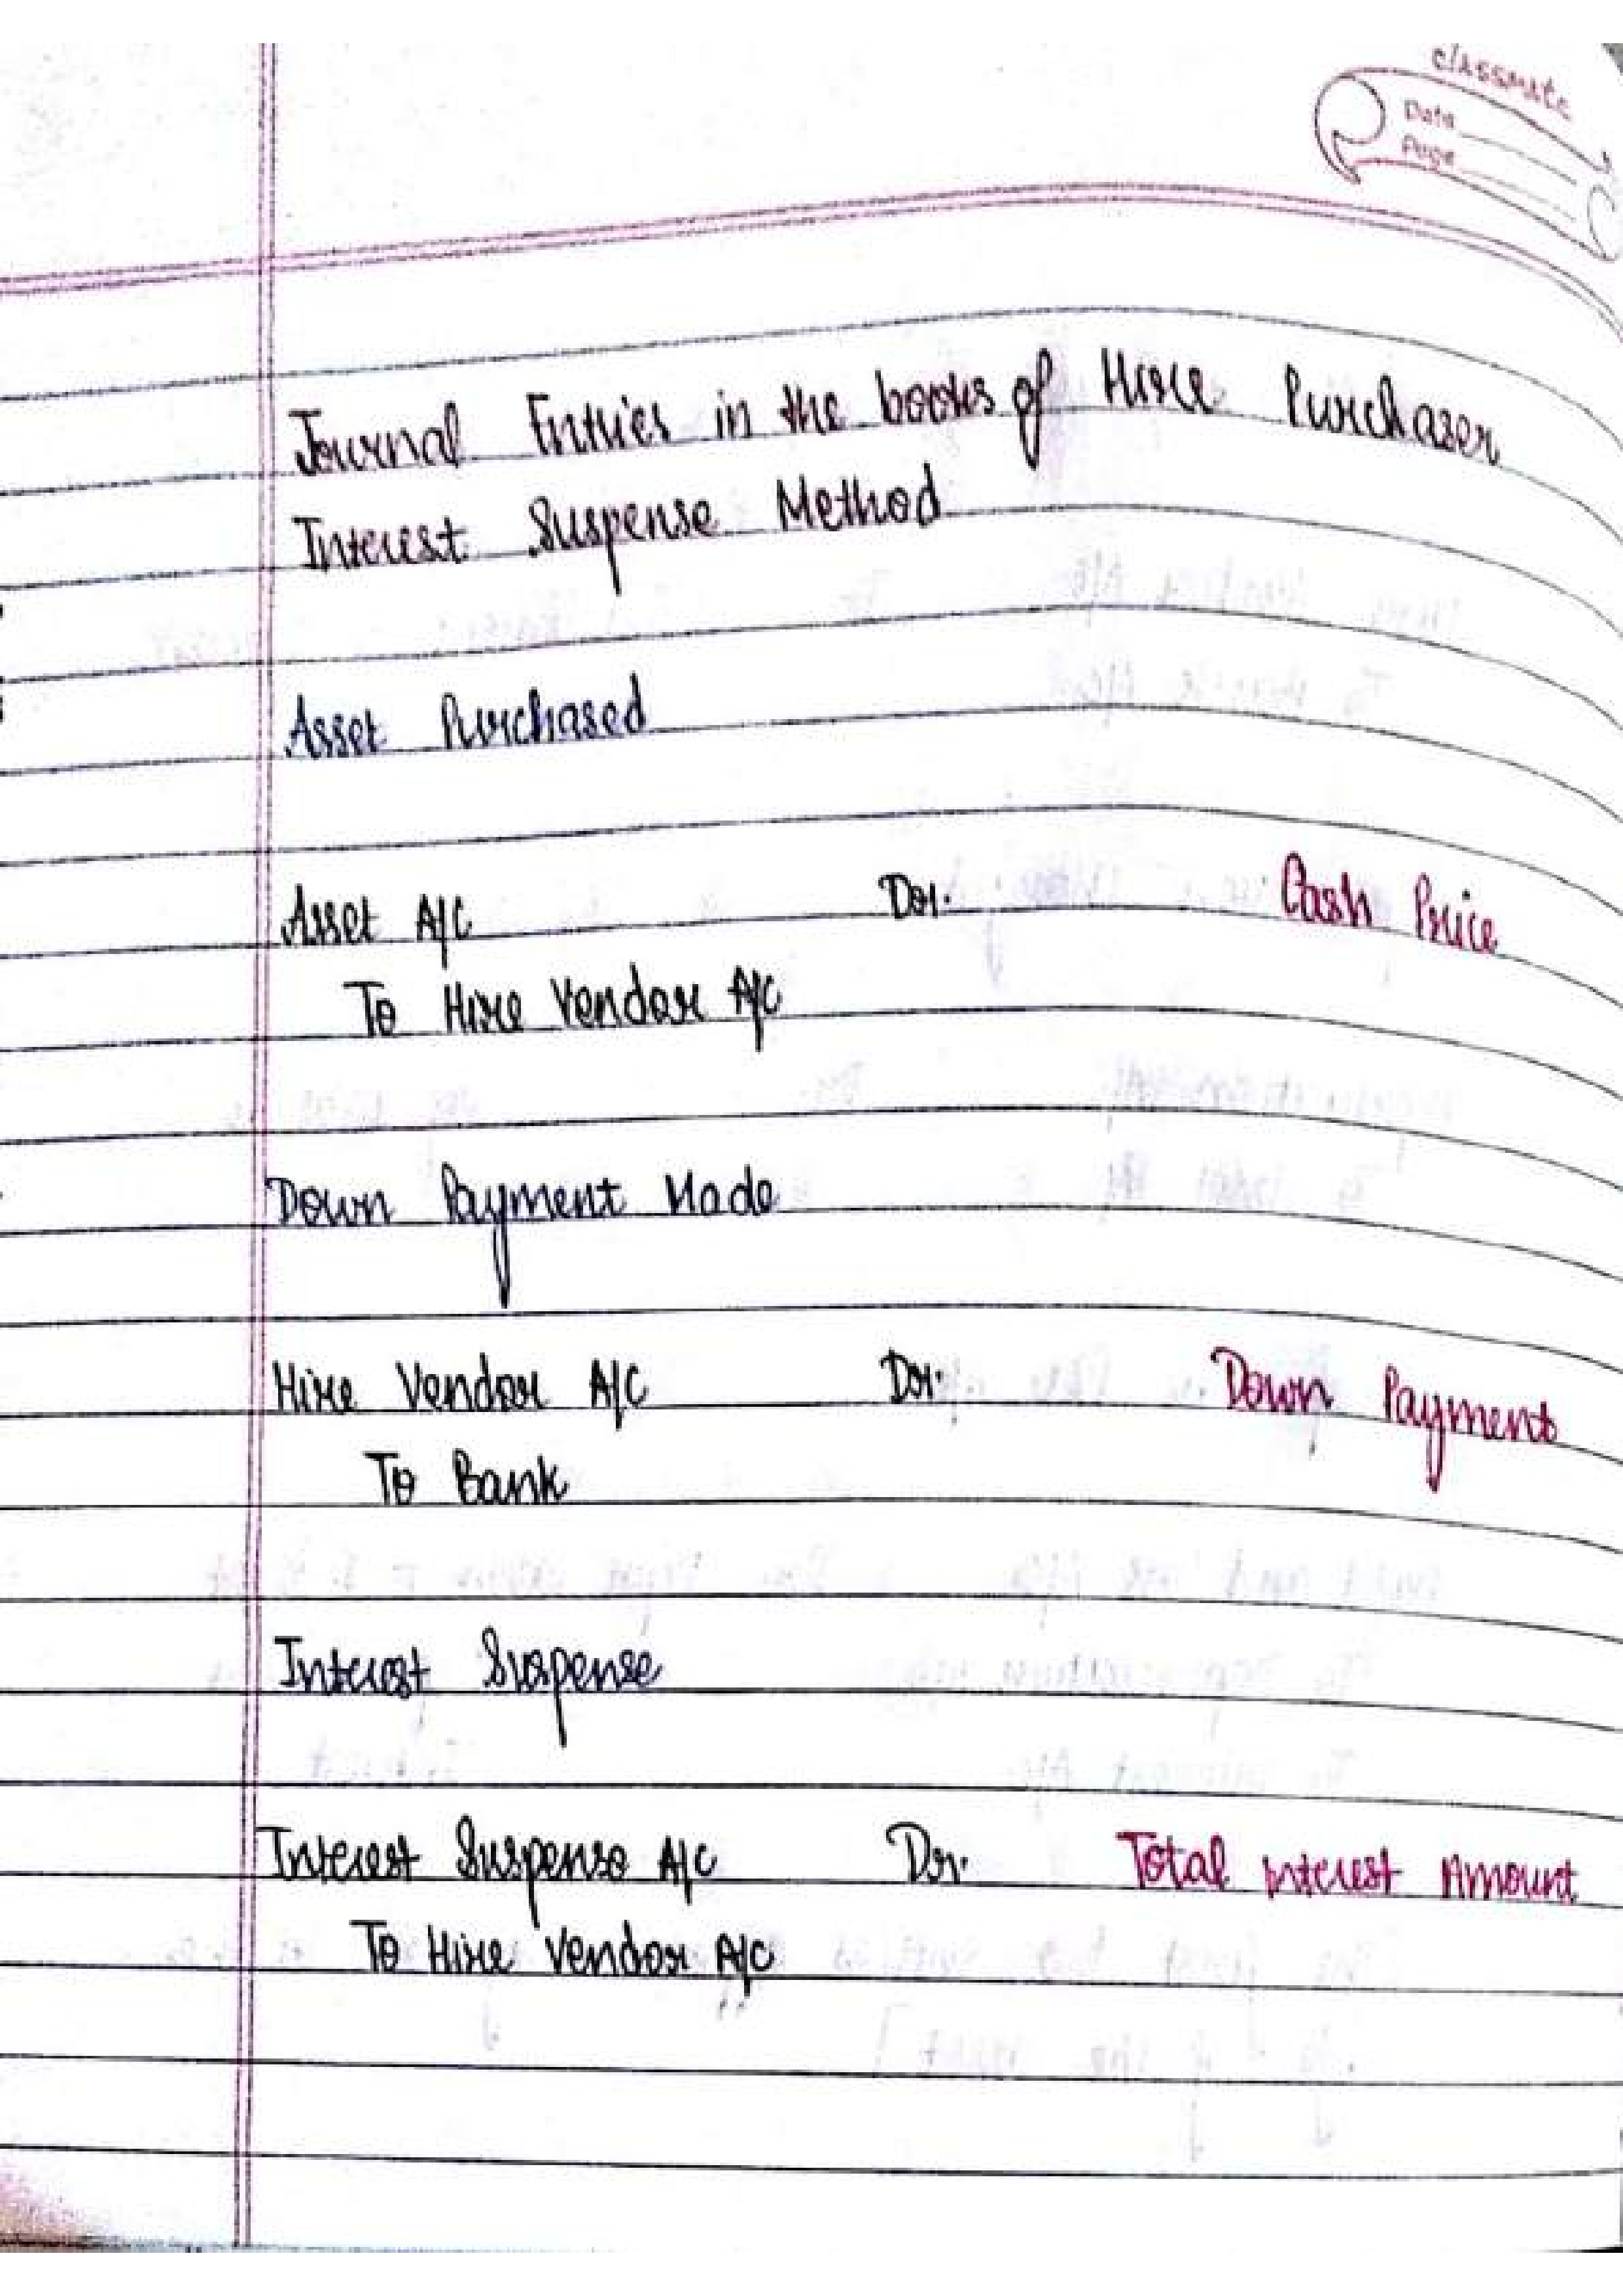 classmate
Date
Page
Journal Entries in the books of Hire Purchaser
Interest Suspense Method
Asset Purchased
Asset A/C Dr. Cash Price
To Hire Vendor A/C
Down Payment Made
Hire Vendor A/C Dr. Down Payment
To Bank
Interest Suspense
Interest Suspense A/C Dr. Total interest Amount
To Hire Vendor A/C